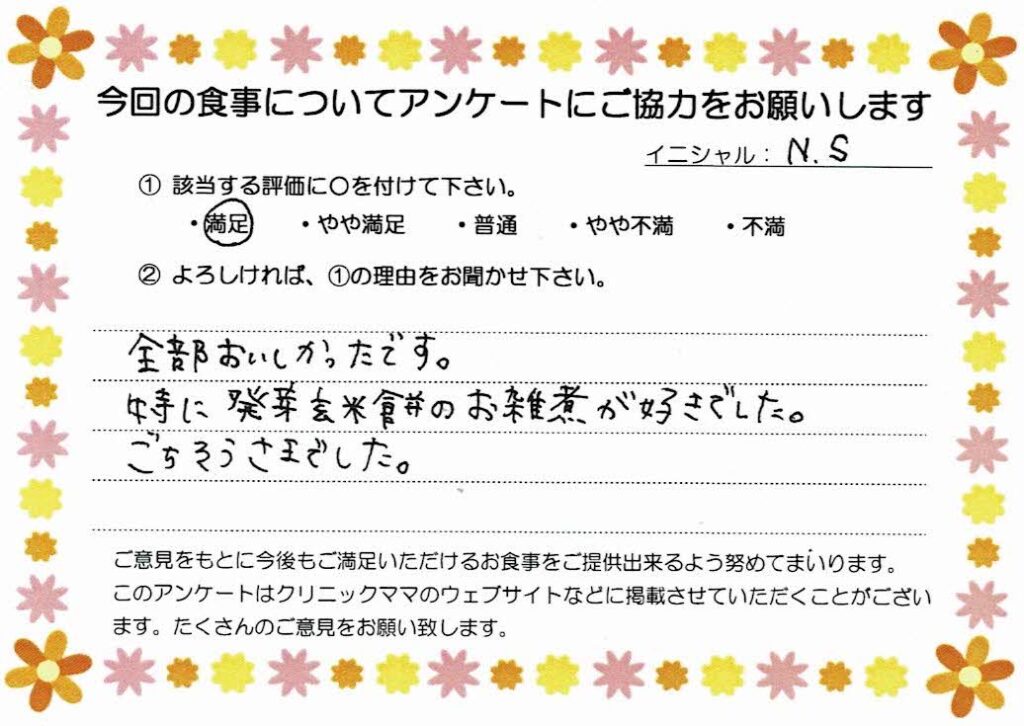 今回の食事についてアンケートにご協力をお願いします
イニシャル： N.S
① 該当する評価に〇を付けて下さい。
・満足 ・やや満足 ・普通 ・やや不満 ・不満
② よろしければ、①の理由をお聞かせ下さい。
全部おいしかったです。
特に発芽玄米餅のお雑煮が好きでした。
ごちそうさまでした。
ご意見をもとに今後もご満足いただけるお食事をご提供出来るよう努めてまいります。
このアンケートはクリニックママのウェブサイトなどに掲載させていただくことがござい
ます。たくさんのご意見をお願い致します。